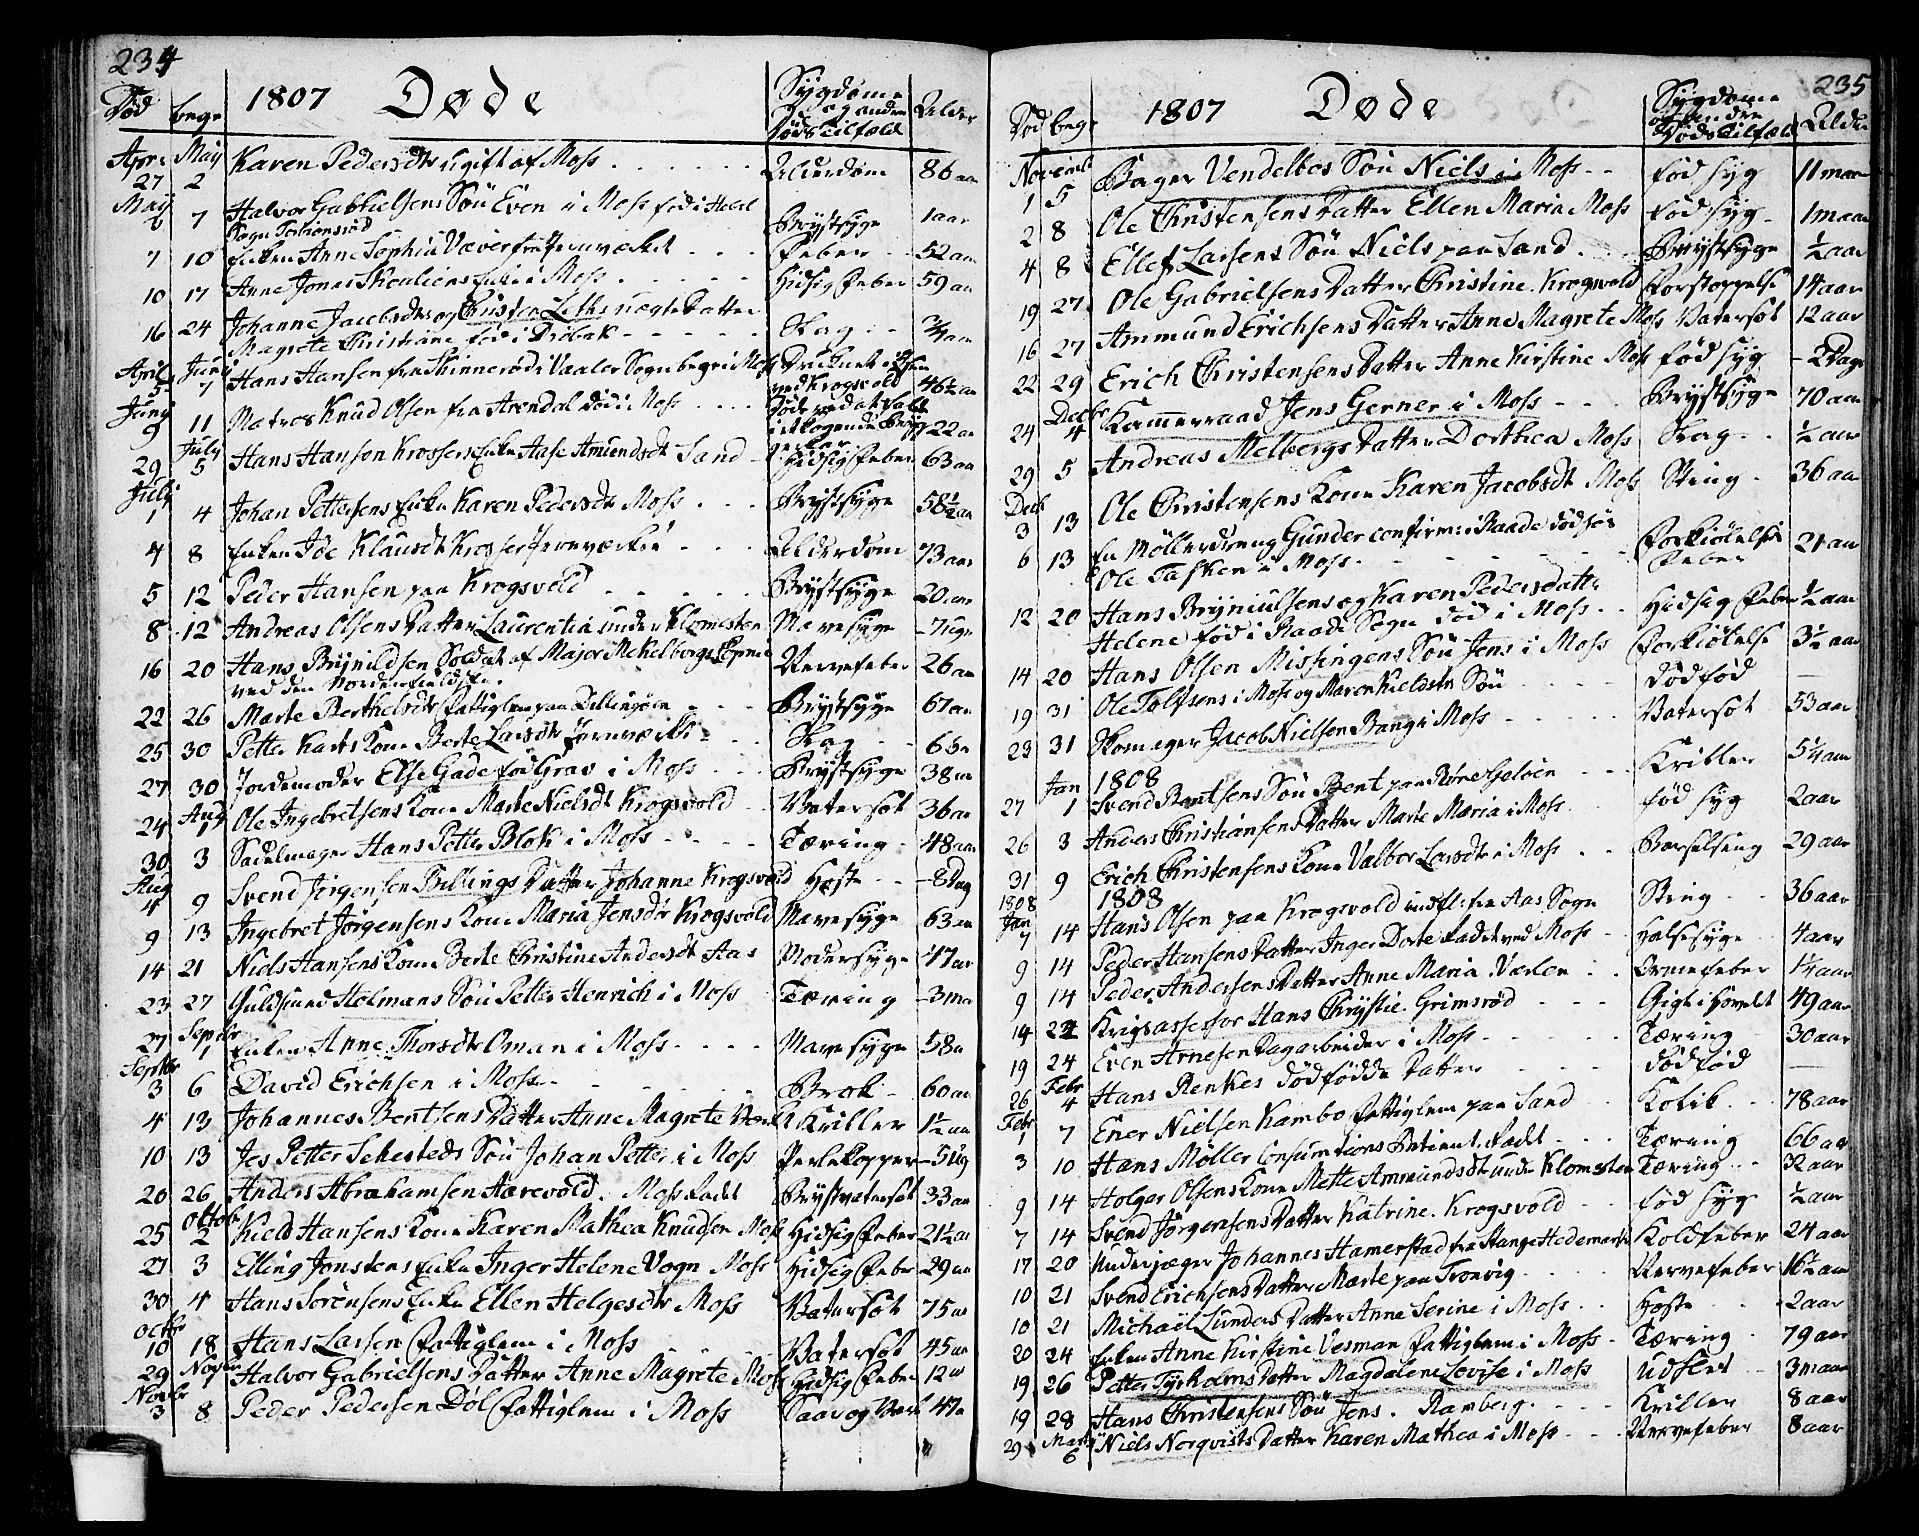 234
1807 Døde
Død begr Sygdome og andre Dødstilfæld Alder
Apr: 27 May 2 Karen Pedersdtr ugift af Moss Alderdom 86 aar
May 2 7 Halvor Gabrielsens Søn Even i Moss fød i Hobøl Sogn Brystsyge 1 aar
7 10 Enken Anne Sophia Væver fra Jernværket Feber 52 aar
10 17 Anne Jonas Enke i Moss Hidsig Feber 59 aar
16 24 Johanne Jacobsdtr og Christen Leths uægte Datter
Magrete Christiane fød i Drøbak Slag 3/4 aar
April 5 Juny 7 Hans Hansen fra Skinnerød i Vaaler Sogn begr i Moss Druknet i Elven ved Krogsvold 46½ aar
Juny 9 11 Matros Knud Olsen fra Arendal død i Moss 22 aar
29 July 5 Hans Hanson Krossers Enke Aase Amundsdt Sand Hidsig Feber 63 aar
July 1 4 Johan Pettersens Enke Karen Pedersdt Moss Brystsyge 58½ aar
4 8 Enken Klausdt Krosser Jernværket Alderdom 73 aar
5 12 Peder Hansen paa Krogsvold Brystsyge 20 aar
8 12 Andreas Olsens Datter Laurentia under Klomesten Mavesyge 7 ugr
16 20 Hans Brynildsen Soldat af Major Mekelborgs Comp:
ved den Nordenfieldske. Nervefeber 26 aar
22 26 Marte Berthelsdtr Fattiglem paa Dillingøen Brystsyge 67 aar
25 30 Petter Karls Kone Berte Larsdtr Jernværket Slag 63 a
27 30 Jordemoder Else Gade fød Grav i Moss Brystsyge 38 aar
24 Aug 1 Ole Ingebretsens Kone Marte Nielsdt Krogsvold Vatersot 36 aar
30 3 Sadelmager Hans Petter Blok i Moss Tæring 48 aar
Aug 4 9 Svend Jørgensen Billings Datter Johanne Krogsvold Hoste 8 Dag
9 13 Ingebret Jørgensens Kone Maria Jensdtr Krogsvold Mavesyge 63 aar
14 21 Niels Hansens Kone Berte Christine Andersdt Aas Modersyge 47 aar
23 27 Guldsmed Holmans Søn Petter Henrich i Moss Tæring 3 ma
27 Septbr 1 Enken Anne Thorsdtr Oman i Moss Mavesyge 58 a
Septbr 3 6 David Erichsen i Moss Brok 60 aar
4 13 Johannes Bentsens Datter Anne Magrete Værket Kriller 1½ aar
10 13 Jes Petter Sehesteds Søn Johan Petter i Moss Perlekopper 5 Ug
20 26 Anders Abrahamsen Aarevold. Moss Ladet Brystvatersot 33 aar
25 Octobr 2 Kield Hansens Kone Karen Mathea Knudsen Moss Hidsig Feber 21½ aar
27 3 Elling Jonsens Enke Inger Helene Vogn Moss Hidsig Feber 29 aar
30 4 Hans Sørensens Enke Ellen Helgesdtr Moss Vatersot 75 aar
Octbr 10 18 Hans Larsen Fattiglem i Moss Vatersot 45 aar
29 Novbr 1 Halvor Gabrielsens Datter Anne Magrete Moss Hidsig Feber 12 aar
Novbr 3 8 Peder Pedersen Døl Fattiglem i Moss Saar og Værk 47 a
235
1807 Døde
Død begr Sygdome og andre Dødstilfæld Alder
Novembr 1 5 Bager Vendelbos Søn Niels i Moss fød syg 11 maan
2 8 Ole Christensens Datter Ellen Maria Moss fød syg 1 maan
4 8 Ellef Larsens Søn Niels paa Sand Brystsyge ½ aar
19 27 Ole Gabrielsens Datter Christine. Krogsvold Forstoppelse 14 aar
16 27 Ammund Erichsens Datter Anne Magrete Moss Vatersot 12 aar
22 29 Erich Christensens Datter Anne Kirstine Moss fød syg 2 Dage
24 Decbr 4 Kammerraad Jens Gerner i Moss Brystsyge 70 aar
29 5 Andreas Melbergs Datter Dorthea Moss Slag ½ aar
Decbr 3 13 Ole Christensens Kone Karen Jacobsdt Moss Sting 36 aar
6 13 En Møllerdreng Gunder confirm: i Raade død hos
Ole Tasken i Moss Forkiølelses Feber 21 aar
12 20 Hans Bryniulfsens og Karen Pedersdatter
Helene fød i Raade Sogn død i Moss Hidsig Feber ½ aar
14 20 Hans Olsen Missingens Søn Jens i Moss Forkiølelse 3½ aar
19 31 Ole Tolfsens i Moss og Maren Kieldsdtr Søn Dødfød
23 31 Skomager Jacob Nielsen Bang i Moss Vatersot 53 aar
Jan 1808
27 1 Svend Bentsens Søn Bent paa Røre Geløen Kriller 5¼ aar
26 3 Anders Christiansens Datter Marte Maria i Moss fød syg 2 aar
31 9 Erich Christensens Kone Valbor Larsdt i Moss Barselseng 29 aar
1808 1808
Jan 7 14 Hans Olsen paa Krogsvold indfl: fra Aas Sogn Sting 36 aar
9 14 Peder Hansens Datter Inger Dorte Ladet ved Moss Halssyge 4 aar
9 14 Peder Andersens Datter Anne Maria. Værlen Ormefeber 1¼ aar
14 22 Krigsassessor Hans Chrystie. Grimsrød Gigt i Hovedt 49 aar
19 24 Even Arnesen Dagarbeider i Moss Tæring 30 aar
26 Febr 4 Hans Renkes dødfødde Datter Dødfød
Febr 1 7 Ener Nielsen Kambo Fattiglem paa Sand Kolik 78 aar
3 10 Hans Møller Consumtions Betient. Ladet Tæring 66 aar
9 14 Holger Olsens Kone Mette Ammundsdt under Klomesten Tæring 32 aar
7 14 Svend Jørgensens Datter Katrine. Krogsvold fød syg ½ aar
17 20 Underjæger Johannes Hamerstad fra Stange Hedemarken Koldfeber 24 aar
10 21 Svend Erichsens Datter Marte paa Tronvig Nervefeber 16½ aar
10 21 Michael Lunders Datter Anne Serine i Moss Hoste 2 aar
20 24 Enken Anne Kirstine Vesman Fattiglem i Moss Tæring 79 aar
19 26 Petter Tyrholms Datter Magdalene Lovise i Moss Udslet 3 maan
19 28 Hans Christensens Søn Jens. Ramberg Kriller 8 aar
29 Marty 6 Niels Norqvists Datter Karen Mathea i Moss Nervefeber 8 aar